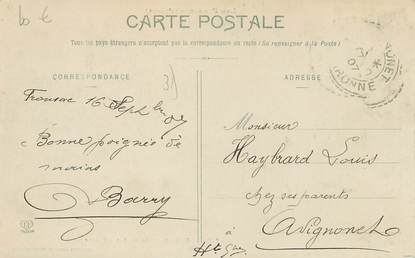 10 €
CARTE POSTALE
Tous les pays étrangers n'acceptent pas la correspondance au recto (Se renseigner à la Poste)
CORRESPONDANCE
ADRESSE
31
Fronsac 16 Septbre 07
Bonne poignée de
mains
Barry
Monsieur
Haybrard Louis
chez ses parents
à Avignonet
Hte Gne